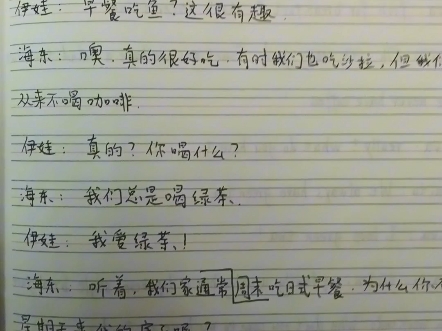 伊娃：早餐吃鱼？这很有趣.
海东：噢，真的很好吃.有时我们也吃沙拉，但我们
从来不喝咖啡.
伊娃：真的？你喝什么？
海东：我们总是喝绿茶.
伊娃：我爱绿茶！
海东：听着，我们家通常周末吃日式早餐.为什么你不
星期天来我的家